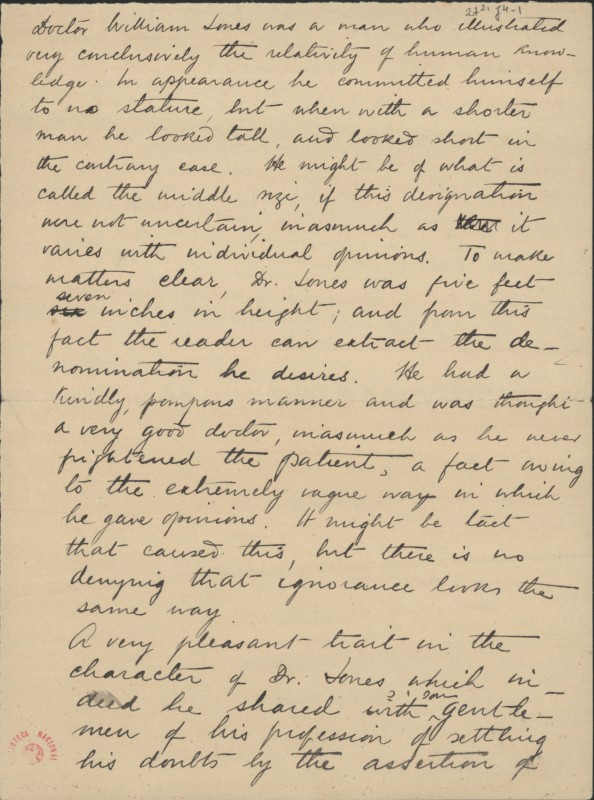 27²¹ J4-1
Doctor William Jones was a man who illustrated
very conclusively the relativity of human know-
ledge. In appearance he committed himself
to no stature, but when with a shorter
man he looked tall, and looked short in
the contrary case. He might be of what is
called the middle size, if this designation
were not uncertain, inasmuch as it
varies with individual opinions. To make
matters clear, Dr. Jones was five feet
seven
six inches in height; and from this
fact the reader can extract the de-
nomination he desires. He had a
kindly, pompous manner and was thought
a very good doctor, inasmuch as he never
frightened the patient, a fact owing
to the extremely vague way in which
he gave opinions. It might be tact
that caused this, but there is no
denying that ignorance looks the
same way
A very pleasant trait in the
character of Dr. Jones, which in-
deed he shared with gentle-
men of his profession of settling
his doubts by the assertion of
NACIONAL